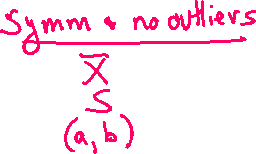 Symm & no outliers
X̅
S
(a, b)